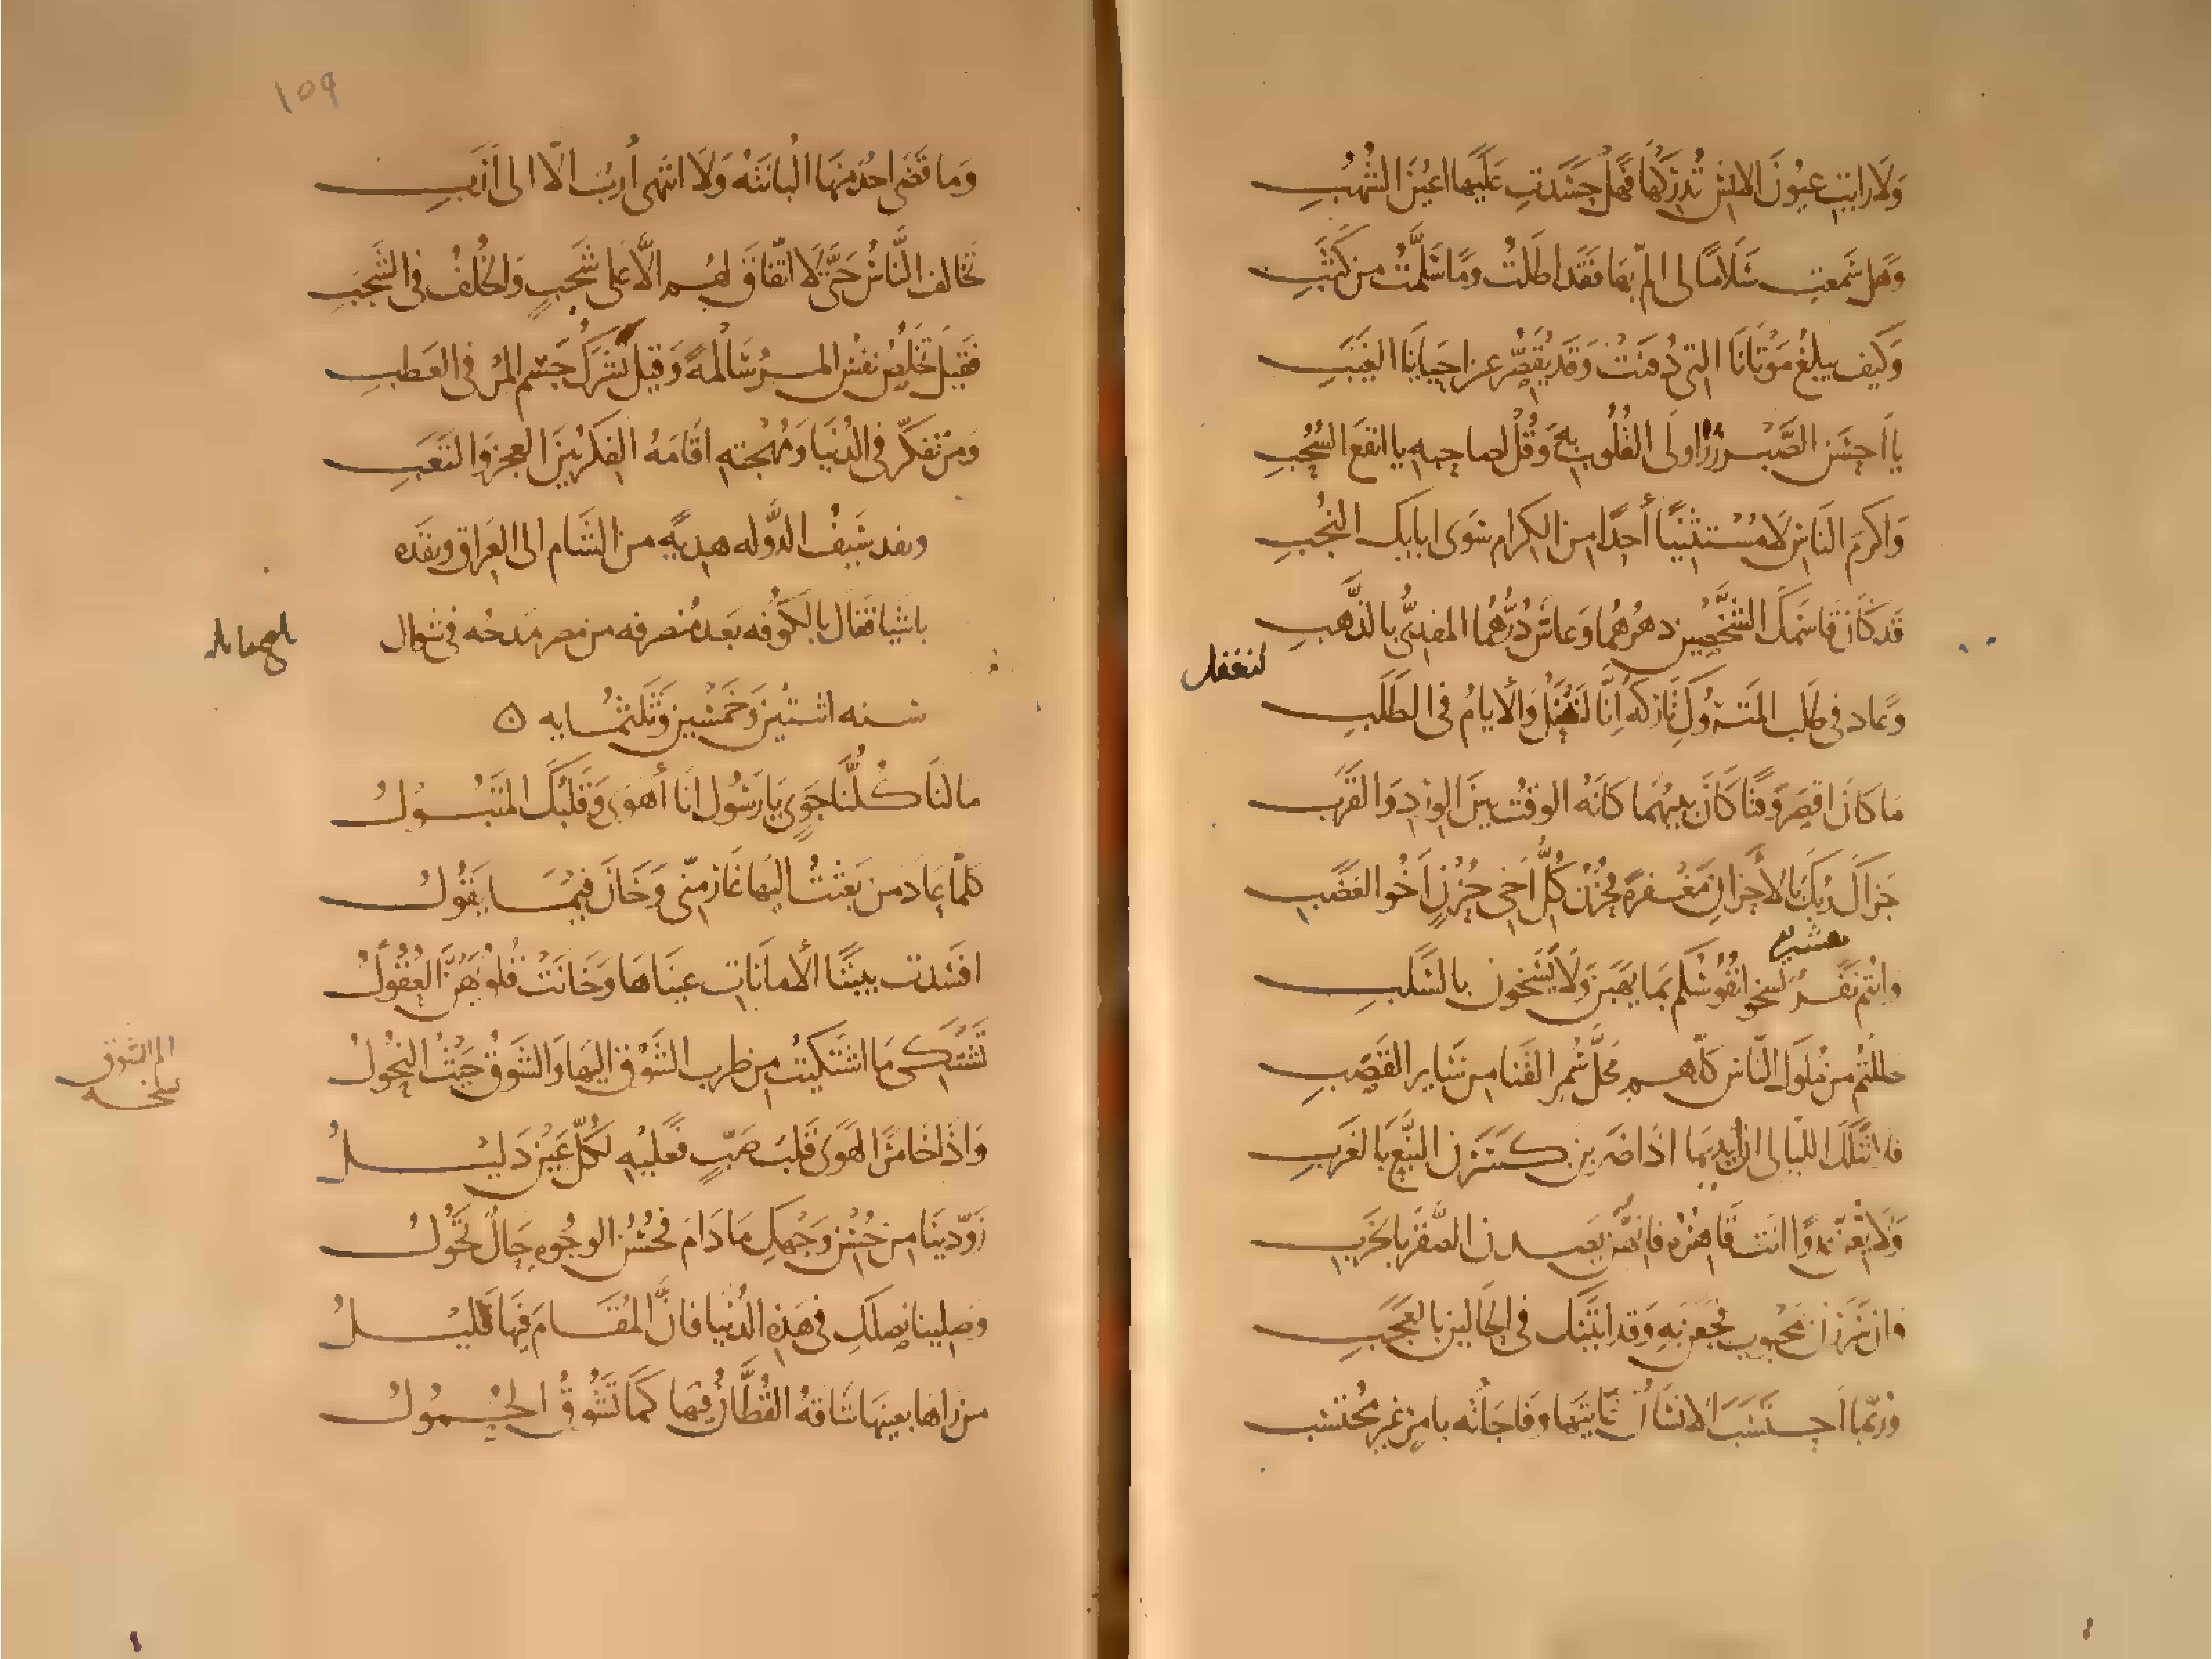 وَلَا رَايتِ عيُونَ الانِس تُدرِكُهَا فَهَل حَسَدتِ عَلَيها اعيُنَ الشُهُبِ
وَهَل سَمعتِ سَلَامًا لى المّ بهَا فقَد اطَلتُ وَمَا سَلَّمتُ من كَثَبِ
وَكيَف يبلغُ مَوْتَانَا التى دُفنَتْ وَقَد يُقَصِّرُ عن احيَاينَا الغيَبِ
يا احسَن الصَّبْر زُر اولَى القُلُوبِ بهَا وَقُلْ لصاحِبهِ يا انفعَ السُحُبِ
وَاكرمَ النَاسِ لَا مُسْتَثنيًا أحَدًا من الكرام سوَى ابايكَ النجُبِ
قَد كَانَ قاسَمكَ الشَخْصَينِ دهرُهُما وَعاشَ دُرُّهُما المفدِىُّ بالذَّهبِ
لنغفل
وَعاد فى طلب المَتْروكِ تَاركهُ اِنَّا لَنَغْفَلُ وَالأيامُ فى الطَلَبِ
مَا كانَ اقصَر وَقتًا كَانَ بينهُما كَانّهُ الوقتُ بينَ الوِردِ وَالقَرَبِ
جَزاكَ رَبكَ بالأحزَانِ مَغْفِرةً فحُزنُ كلِّ أخى حُزنٍ اَخُو الغَضَبِ
وَانتُم نَفَرٌ تسخو نفُوسُكُم بمَا يهَبنَ وَلَا يَسخون بالسَلَبِ
حللتُم من مُلوكِ النّاسِ كلّهم محَلَّ سُمرِ القَنا من سَايرِ القَصَبِ
فلا تَنَلكَ الليَالى انّ ايديهَا اذا ضَربنَ كسَرنَ النَبْعَ بالغَرَبِ
وَلَا يُعنّ عدوًا انتَ قَاهرُهُ فانهُنّ يَصِدنَ الصَّقرَ بالخَرَبِ
وَان سَرَرنَ بمحبُوبٍ فجَعنَ بهِ وَقد اتيَنَكَ فى الحَالينِ بالعَجَبِ
وَربّما احتَسَبَ الانسَانُ غَايتَهَا وفَاجَاتْه بامرٍ غيرِ مُحتسَبِ
١٥٩
وَمَا قَضَى احَدٌ منهَا لُبانتَهُ وَلَا انتهى أرَبٌ الّا الى أرَبِ
تخَالفَ النَّاسُ حَتَّى لَا اتّفَاقَ لهُم الّا عَلى شَجَبٍ وَالخُلفُ فى الشَجَبِ
فَقِيلَ تَخلُصُ نفسُ المَرءِ سَالمةً وَقيلَ تَشرَكُ جسْمَ المَرءِ فى العَطبِ
وَمن تَفكَّر فى الدُنيَا وَمُهْجتهِ اقَامَهُ الفكرُ بينَ العجزِ وَالتَعَبِ
ونفد سَيفُ الدَّوله هديةً من الشَام الى العِرَاق ونفذه
باشيا فقَال بالكُوفه بَعدَ مُنصرفه من مصر مَدحُه فى شوال
سنه اثنتين وَخَمْسِين وَثَلثمايه
مالنَا كُلُّنَا جَوٍى يَا رَسُول انا أهْوَى وَقَلبُكَ المَتبُولُ
كلّمَا عاد من بَعثتُ اليهَا غَارَ منّى وَخَانَ فيمَا يَقُولُ
افسَدت بيننَا الأمانَاتِ عينَاهَا وَخَانَتْ قُلوبَهُنَّ العُقُولُ
تَشتكى مَا اشتَكيتُ من طرب الشَوْقِ اليهَا وَالشَوقُ حَيْثُ النُحُولُ
الم الشوق
نسخه
وَاذَا خَامَرَ الهَوَى قَلبَ صَبٍّ فَعَليْهِ لكُلِّ عَيْنٍ دَليْلُ
زَوّدينَا من حُسْنِ وَجْهكِ مَا دَامَ فحُسْنُ الوجُوهِ حَالٌ تَحُولُ
وَصلينا نصِلكِ فى هَذهِ الدُنيا فانَّ المُقَامَ فيهَا قَليْلُ
من رَاهَا بعينهَا شَاقهُ القُطَّانُ فيهَا كَمَا تَشُوقُ الحُمُولُ